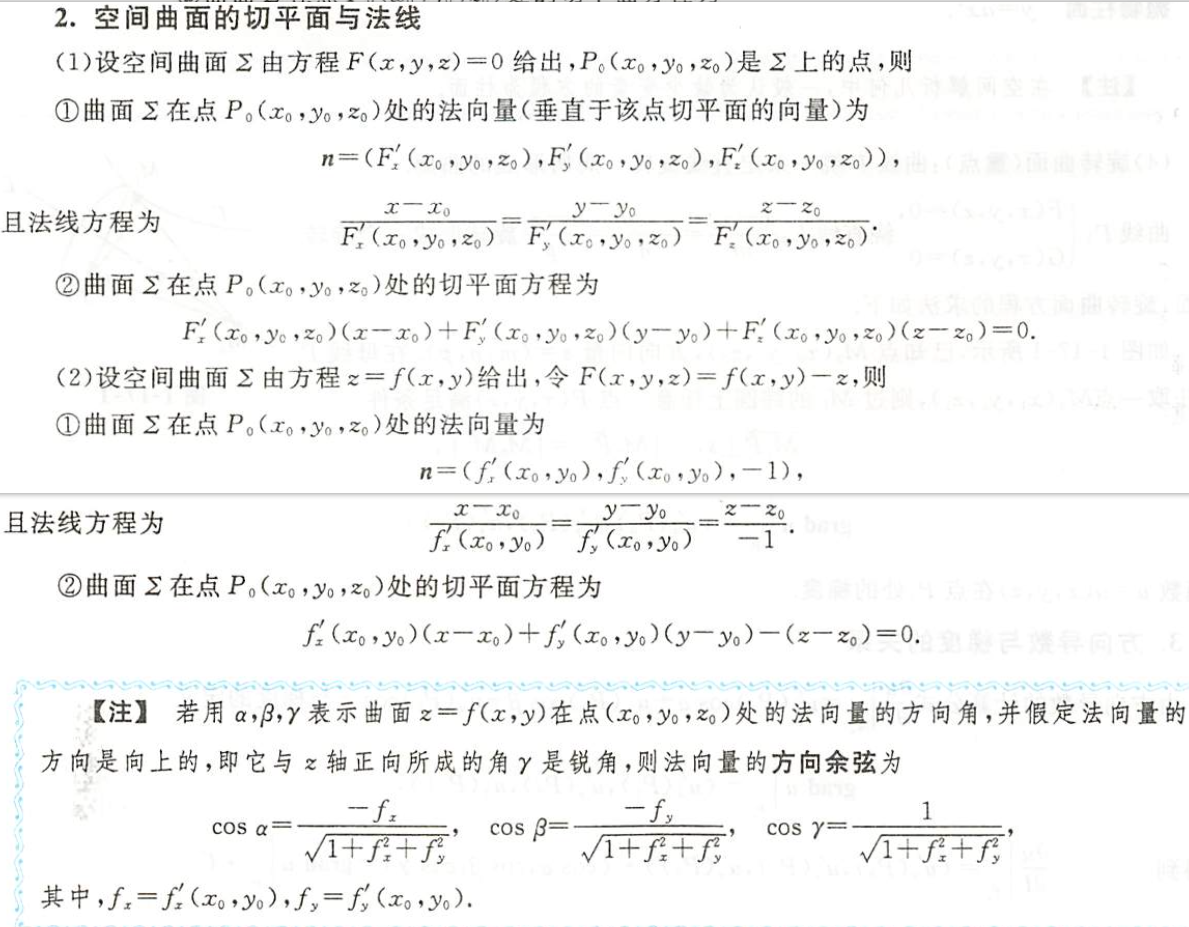 2. 空间曲面的切平面与法线
(1)设空间曲面 Σ 由方程 F(x,y,z)=0 给出,P₀(x₀,y₀,z₀)是 Σ 上的点,则
①曲面 Σ 在点 P₀(x₀,y₀,z₀)处的法向量(垂直于该点切平面的向量)为
n=(F′ₓ(x₀,y₀,z₀),F′_y(x₀,y₀,z₀),F′_z(x₀,y₀,z₀)),
且法线方程为 (x−x₀)/F′ₓ(x₀,y₀,z₀)=(y−y₀)/F′_y(x₀,y₀,z₀)=(z−z₀)/F′_z(x₀,y₀,z₀).
②曲面 Σ 在点 P₀(x₀,y₀,z₀)处的切平面方程为
F′ₓ(x₀,y₀,z₀)(x−x₀)+F′_y(x₀,y₀,z₀)(y−y₀)+F′_z(x₀,y₀,z₀)(z−z₀)=0.
(2)设空间曲面 Σ 由方程 z=f(x,y)给出,令 F(x,y,z)=f(x,y)−z,则
①曲面 Σ 在点 P₀(x₀,y₀,z₀)处的法向量为
n=(f′ₓ(x₀,y₀),f′_y(x₀,y₀),−1),
且法线方程为 (x−x₀)/f′ₓ(x₀,y₀)=(y−y₀)/f′_y(x₀,y₀)=(z−z₀)/−1.
②曲面 Σ 在点 P₀(x₀,y₀,z₀)处的切平面方程为
f′ₓ(x₀,y₀)(x−x₀)+f′_y(x₀,y₀)(y−y₀)−(z−z₀)=0.
【注】 若用 α,β,γ 表示曲面 z=f(x,y)在点(x₀,y₀,z₀)处的法向量的方向角,并假定法向量的
方向是向上的,即它与 z 轴正向所成的角 γ 是锐角,则法向量的方向余弦为
cos α=−fₓ/√(1+fₓ²+f_y²), cos β=−f_y/√(1+fₓ²+f_y²), cos γ=1/√(1+fₓ²+f_y²),
其中,fₓ=f′ₓ(x₀,y₀),f_y=f′_y(x₀,y₀).